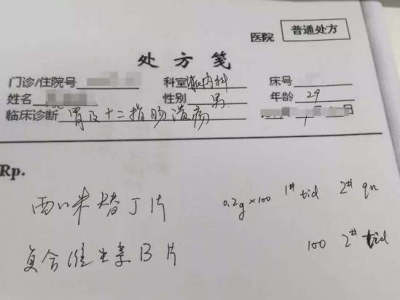 医院 普通处方
处方笺
门诊/住院号 科室 内科 床号
姓名 性别 男 年龄 29
临床诊断 胃及十二指肠溃疡
Rp.
西咪替丁片 0.2g×100 1# tid 2# qn
复合维生素B片 100 2# tid